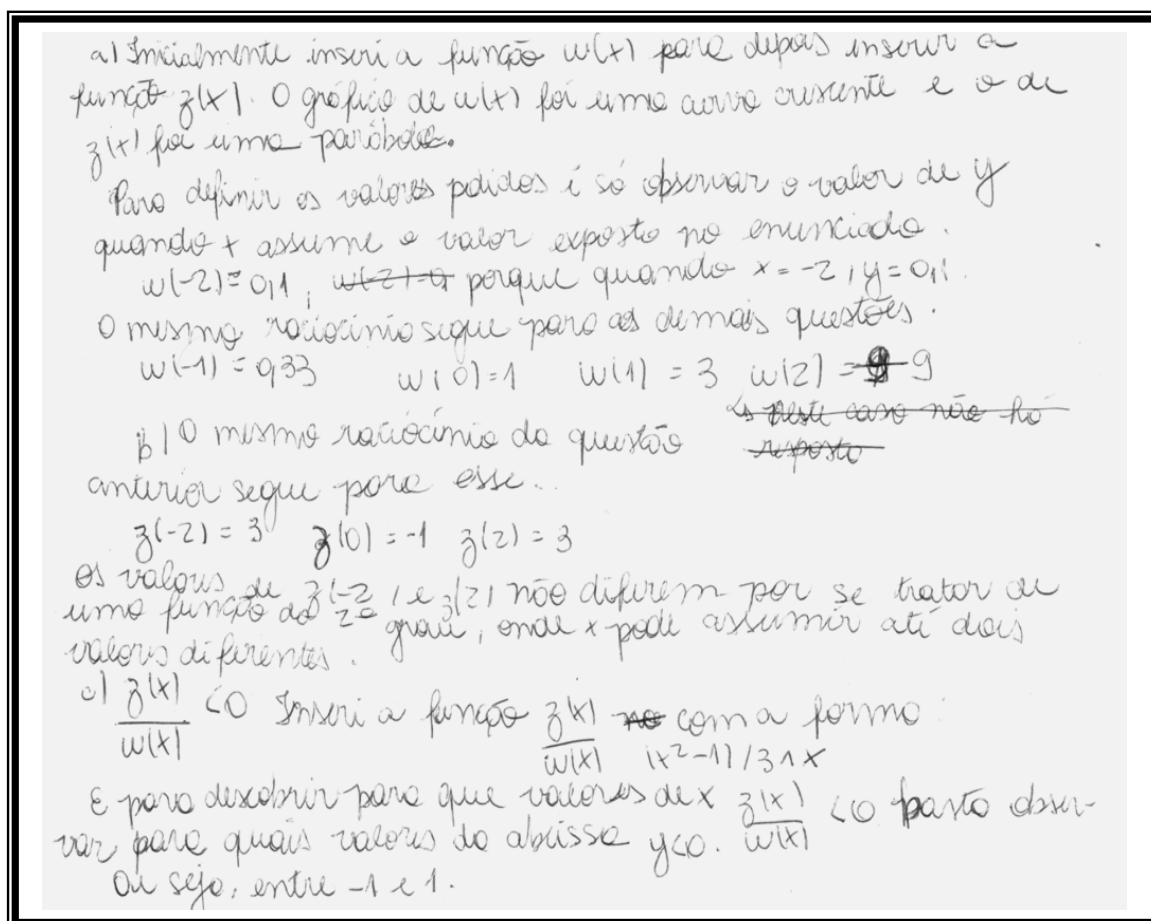 a) Inicialmente inseri a função w(x) para depois inserir a
função z(x). O gráfico de w(x) foi uma curva crescente e o de
z(x) foi uma parábola.
Para definir os valores pedidos é só observar o valor de y
quando x assume o valor exposto no enunciado.
w(-2) = 0,1, w(-2)=0, porque quando x = -2, y = 0,1.
O mesmo raciocínio segue para as demais questões.
w(-1) = 0,33 w(0)=1 w(1) = 3 w(2) = 9 9
↳ Neste caso não há
resposta
b) O mesmo raciocínio da questão
anterior segue para esse..
z(-2) = 3 z(0) = -1 z(2) = 3
Os valores de z(-2) e z(2) não diferem por se tratar de
uma função do 2º grau, onde x pode assumir até dois
valores diferentes.
c) z(x)/w(x) <0 Inseri a função z(x)/w(x) no com a forma:
(x²-1)/3^x
E para descobrir para que valores de x z(x)/w(x) <0 basta obser-
var para quais valores da abcissa y<0.
Ou seja, entre -1 e 1.